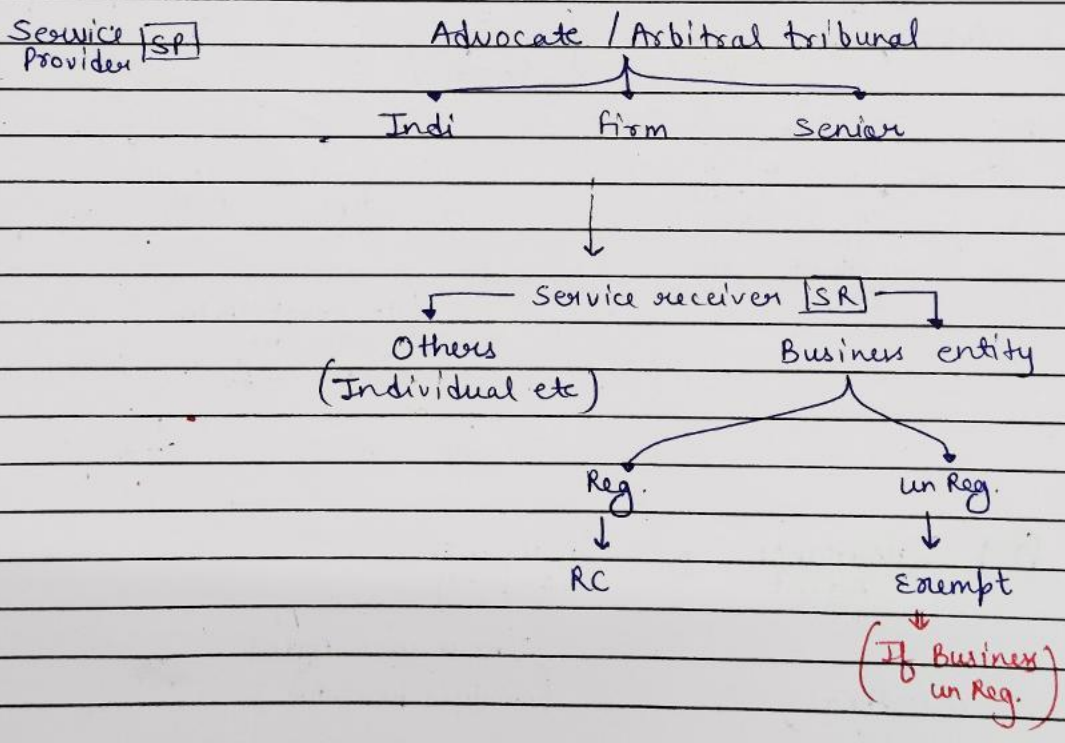 Service Provider SP
Advocate / Arbitral tribunal
Indi firm Senior
Service receiver SR
Others Business entity
(Individual etc)
Reg. un Reg.
RC Exempt
(If Business
un Reg.)